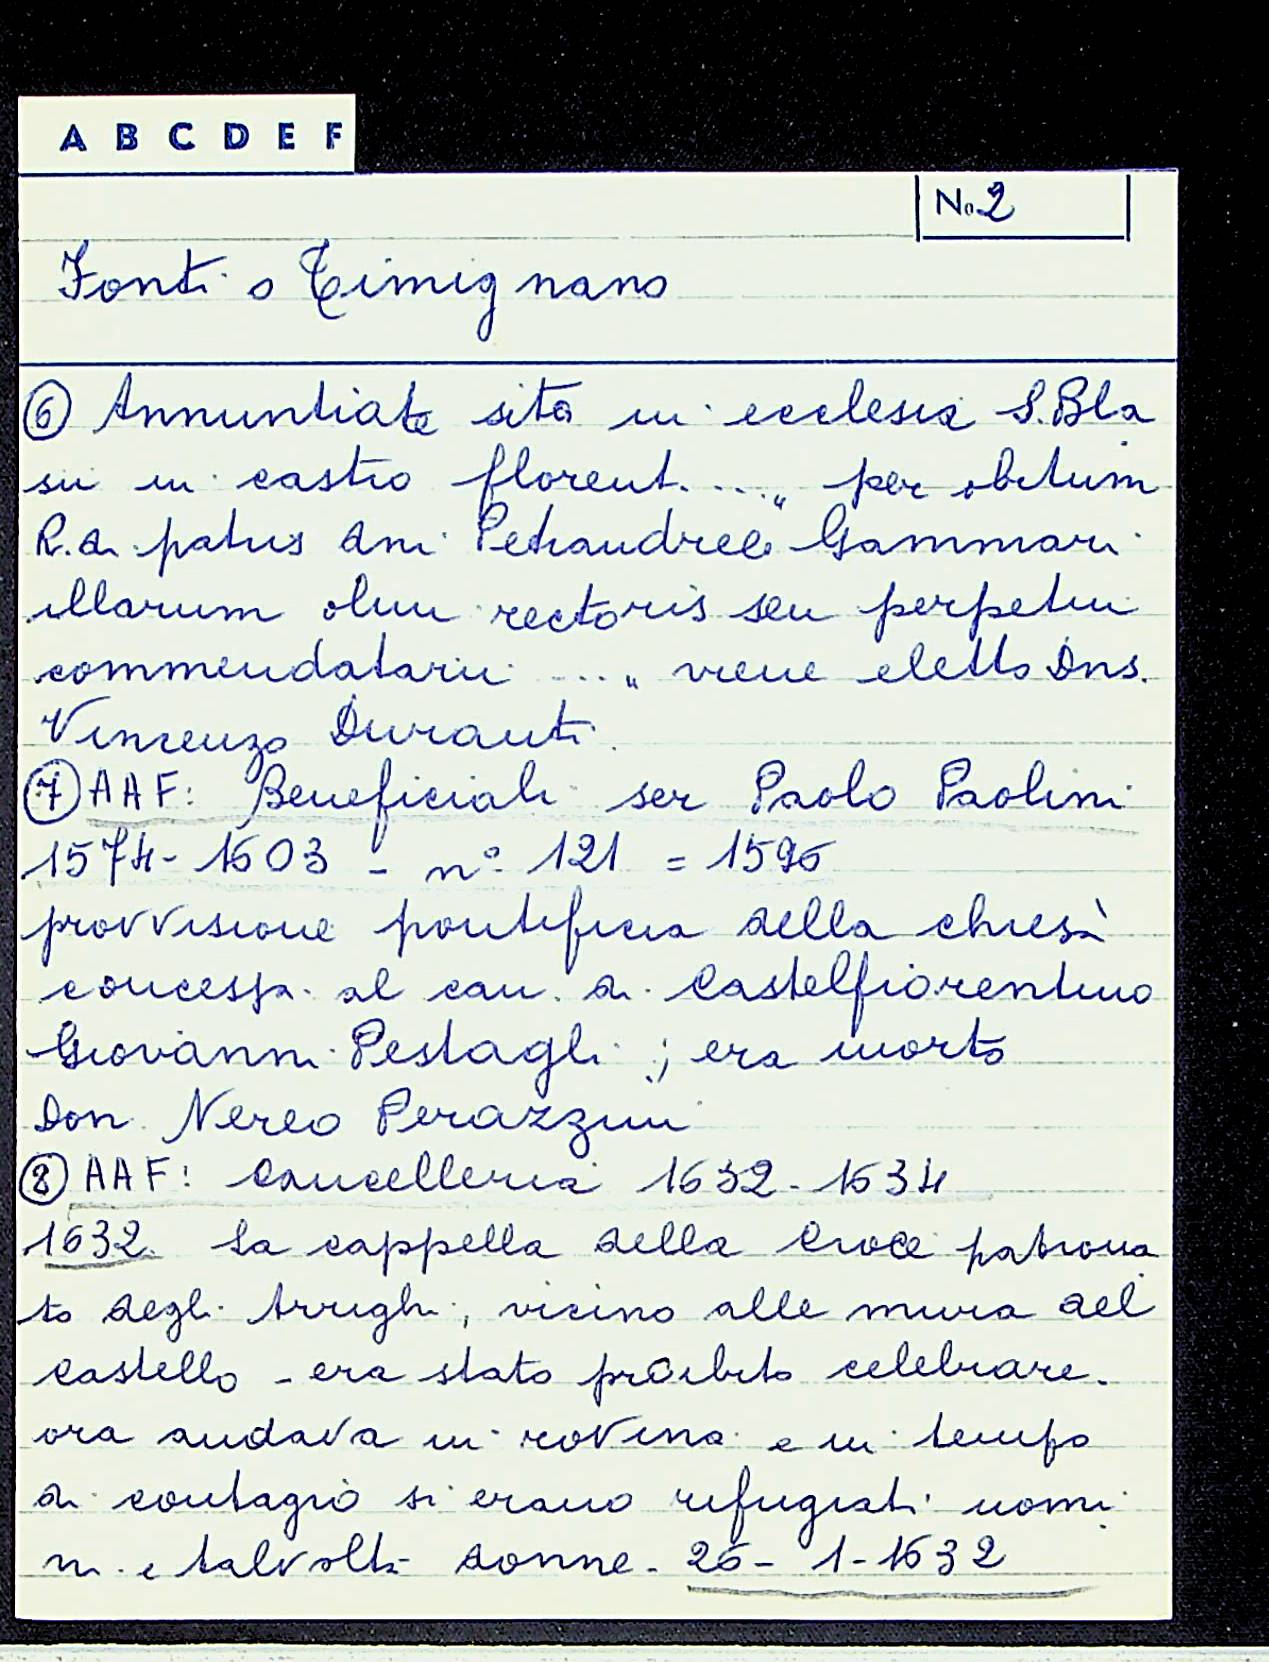 A B C D E F
No. 2
Fonti o Timignano
⑥ Annuntiate sita in ecclesia S. Bla
sii in castro florent. ...„ per obitum
R. di patris dni Petrandree Gammari
illarum olim rectoris seu perpetui
commendatarii ...„ viene eletto Dns.
Vincenzo Duranti.
⑦ AAF: Beneficiali ser Paolo Paolini
1574-1603 - n° 121 = 1596
provvisione pontificia della chiesa
concessa al can. di Castelfiorentino
Giovanni Pestagli; era morto
Don Nereo Perazzini
⑧ AAF: Cancelleria 1632-1634
1632. La cappella della Croce patrona
to degli Arrighi, vicino alle mura del
castello - era stato proibito celebrare.
ora andava in rovina e in tempo
di contagio si erano rifugiati uomi
ni e talvolta donne. 26-1-1632